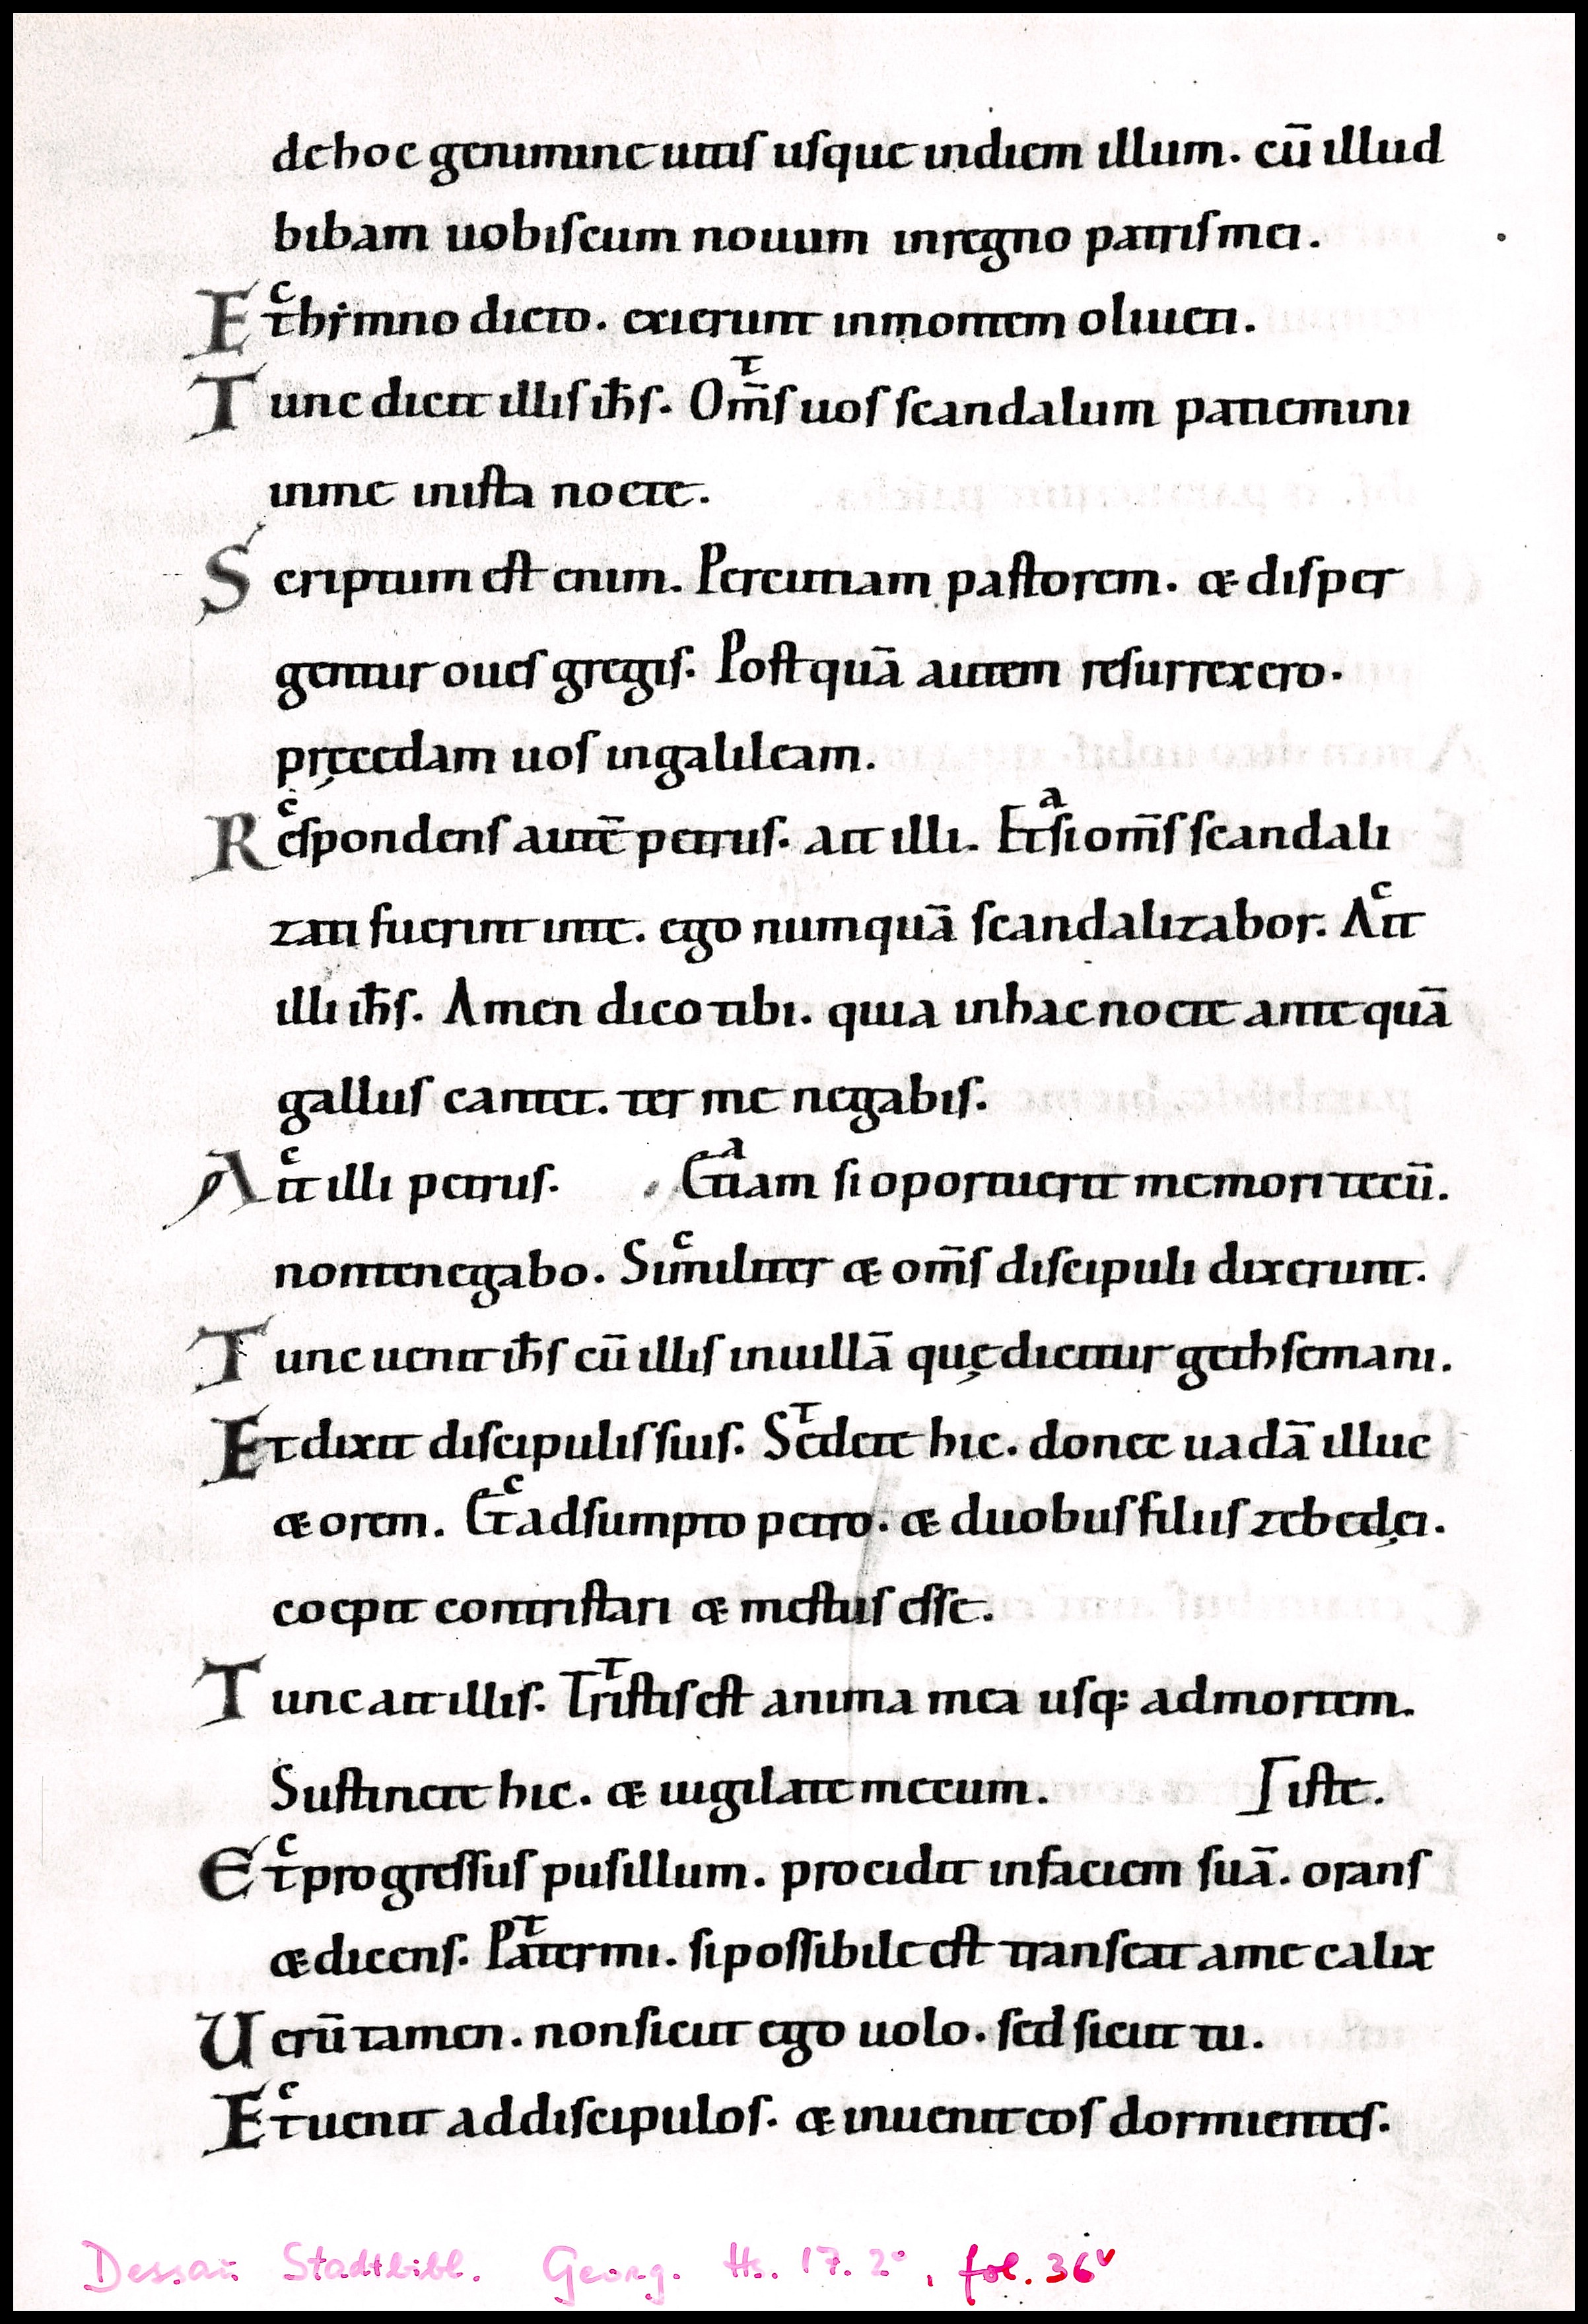 dehoc genimine uitis usque indiem illum. cū illud
bibam uobiscum nouum inregno patris mei.
Et c hẏmno dicto. exierunt inmontem oliueti.
Tunc dicit illis ih̄s. Om̄s t uos scandalum patiemini
inme inista nocte.
Scriptum est enim. Percutiam pastorem. & disper
gentur oues gregis. Postquā autem resurrexero.
pręcedam uos ingalileam.
Respondens c autē petrus. ait illi. Etsi a om̄s scandali
zati fuerint inte. ego numquā scandalizabor. Ait c
illi ih̄s. Amen dico tibi. quia inhac nocte antequā
gallus cantet. ter me negabis.
Ait c illi petrus. Etiam a si oportuerit memori tecū.
nontenegabo. Similiter c & om̄s discipuli dixerunt.
Tunc uenit ih̄s cū illis inuillā quędicitur gethsemani.
Et dixit discipulis suis. Sedete t hic. donec uadā illuc
& orem. Et c adsumpto petro. & duobus filiis zebedęi.
coepit contristari & mestus esse.
Tunc ait illis. Tristis t est anima mea usq; admortem.
Sustinete hic. & uigilate mecum. ⌈iste.
Et c progressus pusillum. procidit infaciem suā. orans
& dicens. Pater t mi. si possibile est transeat ame calix
Uerū tamen. non sicut ego uolo. sed sicut tu.
Et c uenit addiscipulos. & inuenit eos dormientes.
Dessau Stadtbibl. Georg. Hs. 17. 2°, fol. 36v